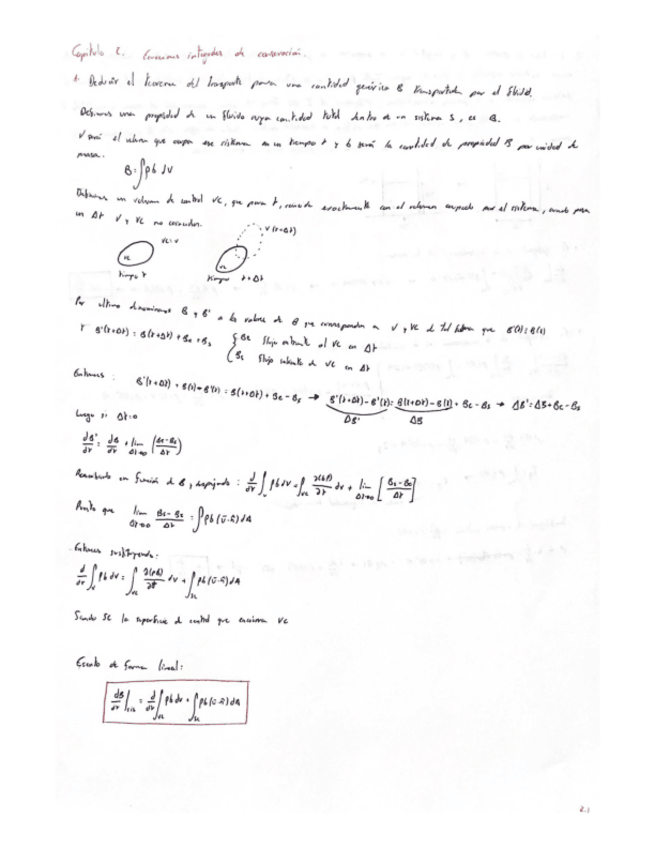 Capítulo 2. Ecuaciones integrales de conservación.
1. Deducir el teorema del transporte para una cantidad genérica B transportada por el fluido.
Definimos una propiedad de un fluido cuya cantidad total dentro de un sistema S, es B.
V será el volumen que ocupa ese sistema en un tiempo t y b será la cantidad de propiedad B por unidad de
masa.
B = ∫ρb dV
Definimos un volumen de control VC, que para t, coincide exactamente con el volumen ocupado por el sistema, cuando pasa
un Δt V y VC no coinciden.
VC=V
VC
tiempo t
V(t+Δt)
VC
tiempo t+Δt
Por último denominamos B y B' a los valores de B que corresponden a V y VC de tal forma que B'(t)=B(t)
Y B'(t+Δt) = B(t+Δt) + Be + Bs
Be flujo entrante al VC en Δt
Bs flujo saliente de VC en Δt
Entonces: B'(t+Δt) + B(t) = B'(t) = B(t+Δt) + Be - Bs → B'(t+Δt) - B'(t) = B(t+Δt) - B(t) + Be - Bs → ΔB' = ΔB + Be - Bs
ΔB' ΔB
Luego si Δt→0
dB'/dt = dB/dt + lim Δt→0 (Be-Bs/Δt)
en función de B, despejando: d/dt ∫v ρb dV = ∫vc ∂(bρ)/∂t dV + lim Δt→0 [Bs-Be/Δt]
Puesto que lim Δt→0 Bs-Be/Δt = ∫ρb(ū·n̄)dA
Entonces sustituyendo:
d/dt ∫v ρb dV = ∫vc ∂(ρb)/∂t dV + ∫sc ρb(ū·n̄)dA
Siendo SC la superficie de control que encierra VC
Escrito de forma lineal:
dB/dt|sis = d/dt ∫vc ρb dV + ∫sc ρb(ū·n̄)dA
2.1